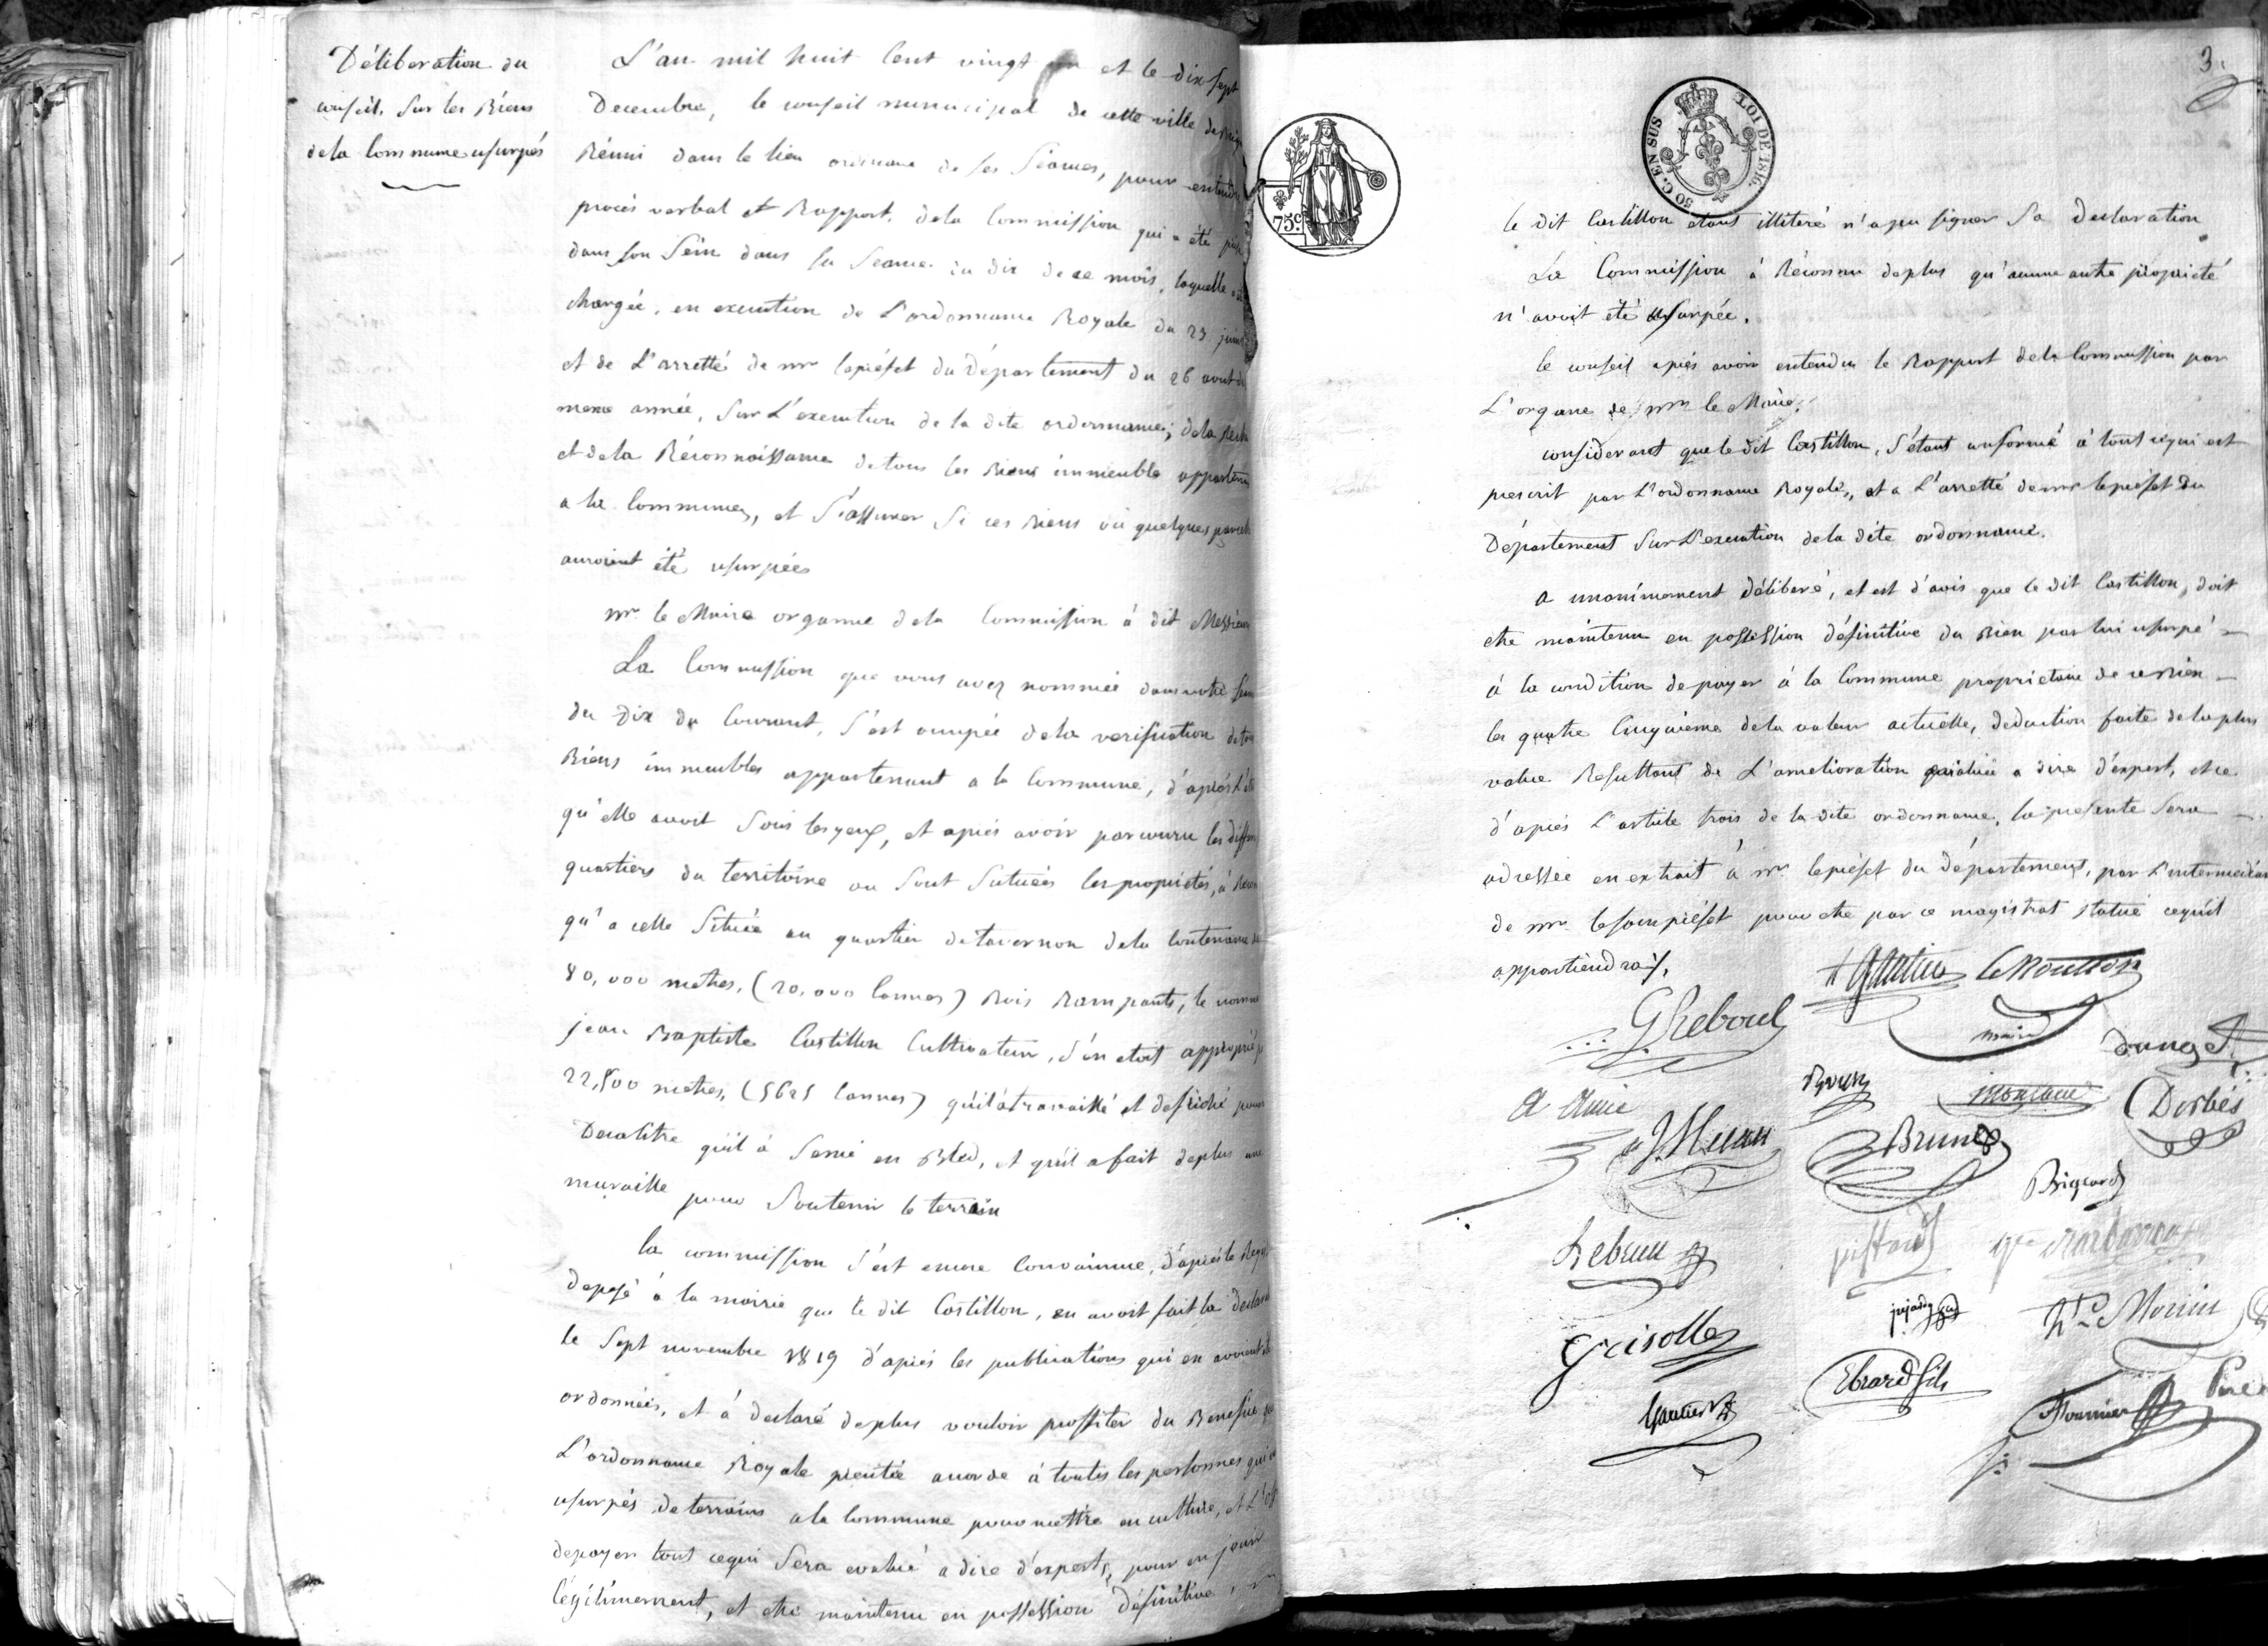 Déliberation du
conseil, Sur les Biens
dela Commune usurpés
L'an mil huit Cent vingt et le dix Sept
Decembre, le conseil municipal de cette ville de
Réuni dans le lieu ordinaire de ses Séances, pour entendre
procès verbal et Rapport, dela Commission qui a été
dans son Sein dans sa Seance du dix de ce mois, laquelle
chargée, en execution de L'ordonnance Royale du 23 juin
et de L'arretté de mr le préfet du Département du 26 aout
meme année, Sur L'execution de la dite ordonnance; dela
et dela Réconnoissance detous les Biens immeuble
a la Commune, et S'assurer Si ces Biens ou quelques
auroient été usurpées
mr le Maire organne dela Commission à dit Messieurs
La Commission que vous avez nommée dans votre
du dix du Courant, S'est occupée dela verification
Biens immeubles appartenant a la Commune, d'après
qu'elle avoit Sous les yeux, et après avoir parcouru les
quartiers du territoire ou Sont Situées les propriétés, à
qu'a celle Située au quartier detavernon dela Contenance
80,000 metres, (20,000 Cannes) Bois Rampants, le
jean Baptiste Castillon Cultivateur, S'en etoit approprié
22,500 metres, (5625 Cannes) qu'il a travaillé et defriché
Decalitre qu'il à Semé en Bled, et qu'il a fait deplus une
muraille pour Soutenir le terrain
la commission S'est encore Convaincue, d'après le
deposé à la mairie que le dit Castillon, en avoit fait la
le Sept novembre 1819 d'après les publications qui en avoient
ordonnées, et à declaré deplus vouloir proffiter du Benefice
L'ordonnance Royale precitée accorde à toutes les personnes
usurpés de terrains ala Commune pour mettre en culture, et
depayer tout cequi Sera evalué a dire d'experts, pour en jouir
légitimement, et etre maintenu en possession définitive
3.
50 C. EN SUS
LOI DE 1816.
75c.
le dit Castillon etant illiteré n'a pu signer Sa declaration
La Commission à Réconnu deplus qu'aucune autre propriété
n'avoit été usurpée.
le conseil après avoir entendu le Rapport dela Commission par
L'organe de mr le Maire.
considerant que le dit Castillon, S'étant conformé à tout cequi est
prescrit par L'ordonnance Royale, et a L'arretté de mr le préfet du
Département Sur L'execution dela dite ordonnance.
a unanimement déliberé, et est d'avis que le dit Castillon, doit
etre maintenu en possession définitive du Bien par lui usurpé
à la condition de payer à la Commune proprietaire de ce Bien
les quatre Cinquième dela valeur actuelle, deduction faite dela plus
value Resultant de L'amelioration a dire d'expert, et ce
d'après L'article trois de la dite ordonnance, la presente Sera
adressée en extrait à mr le préfet du département, par L'intermediaire
de mr le Sous préfet pour etre par ce magistrat statué cequ'il
appartiendra.
Gautier
G Reboul
maire
A Aune
Brunet
Derbès
Rigeard
Lebrun
Grisolle
Morin
Ebrard fils
Gautier
Fournier